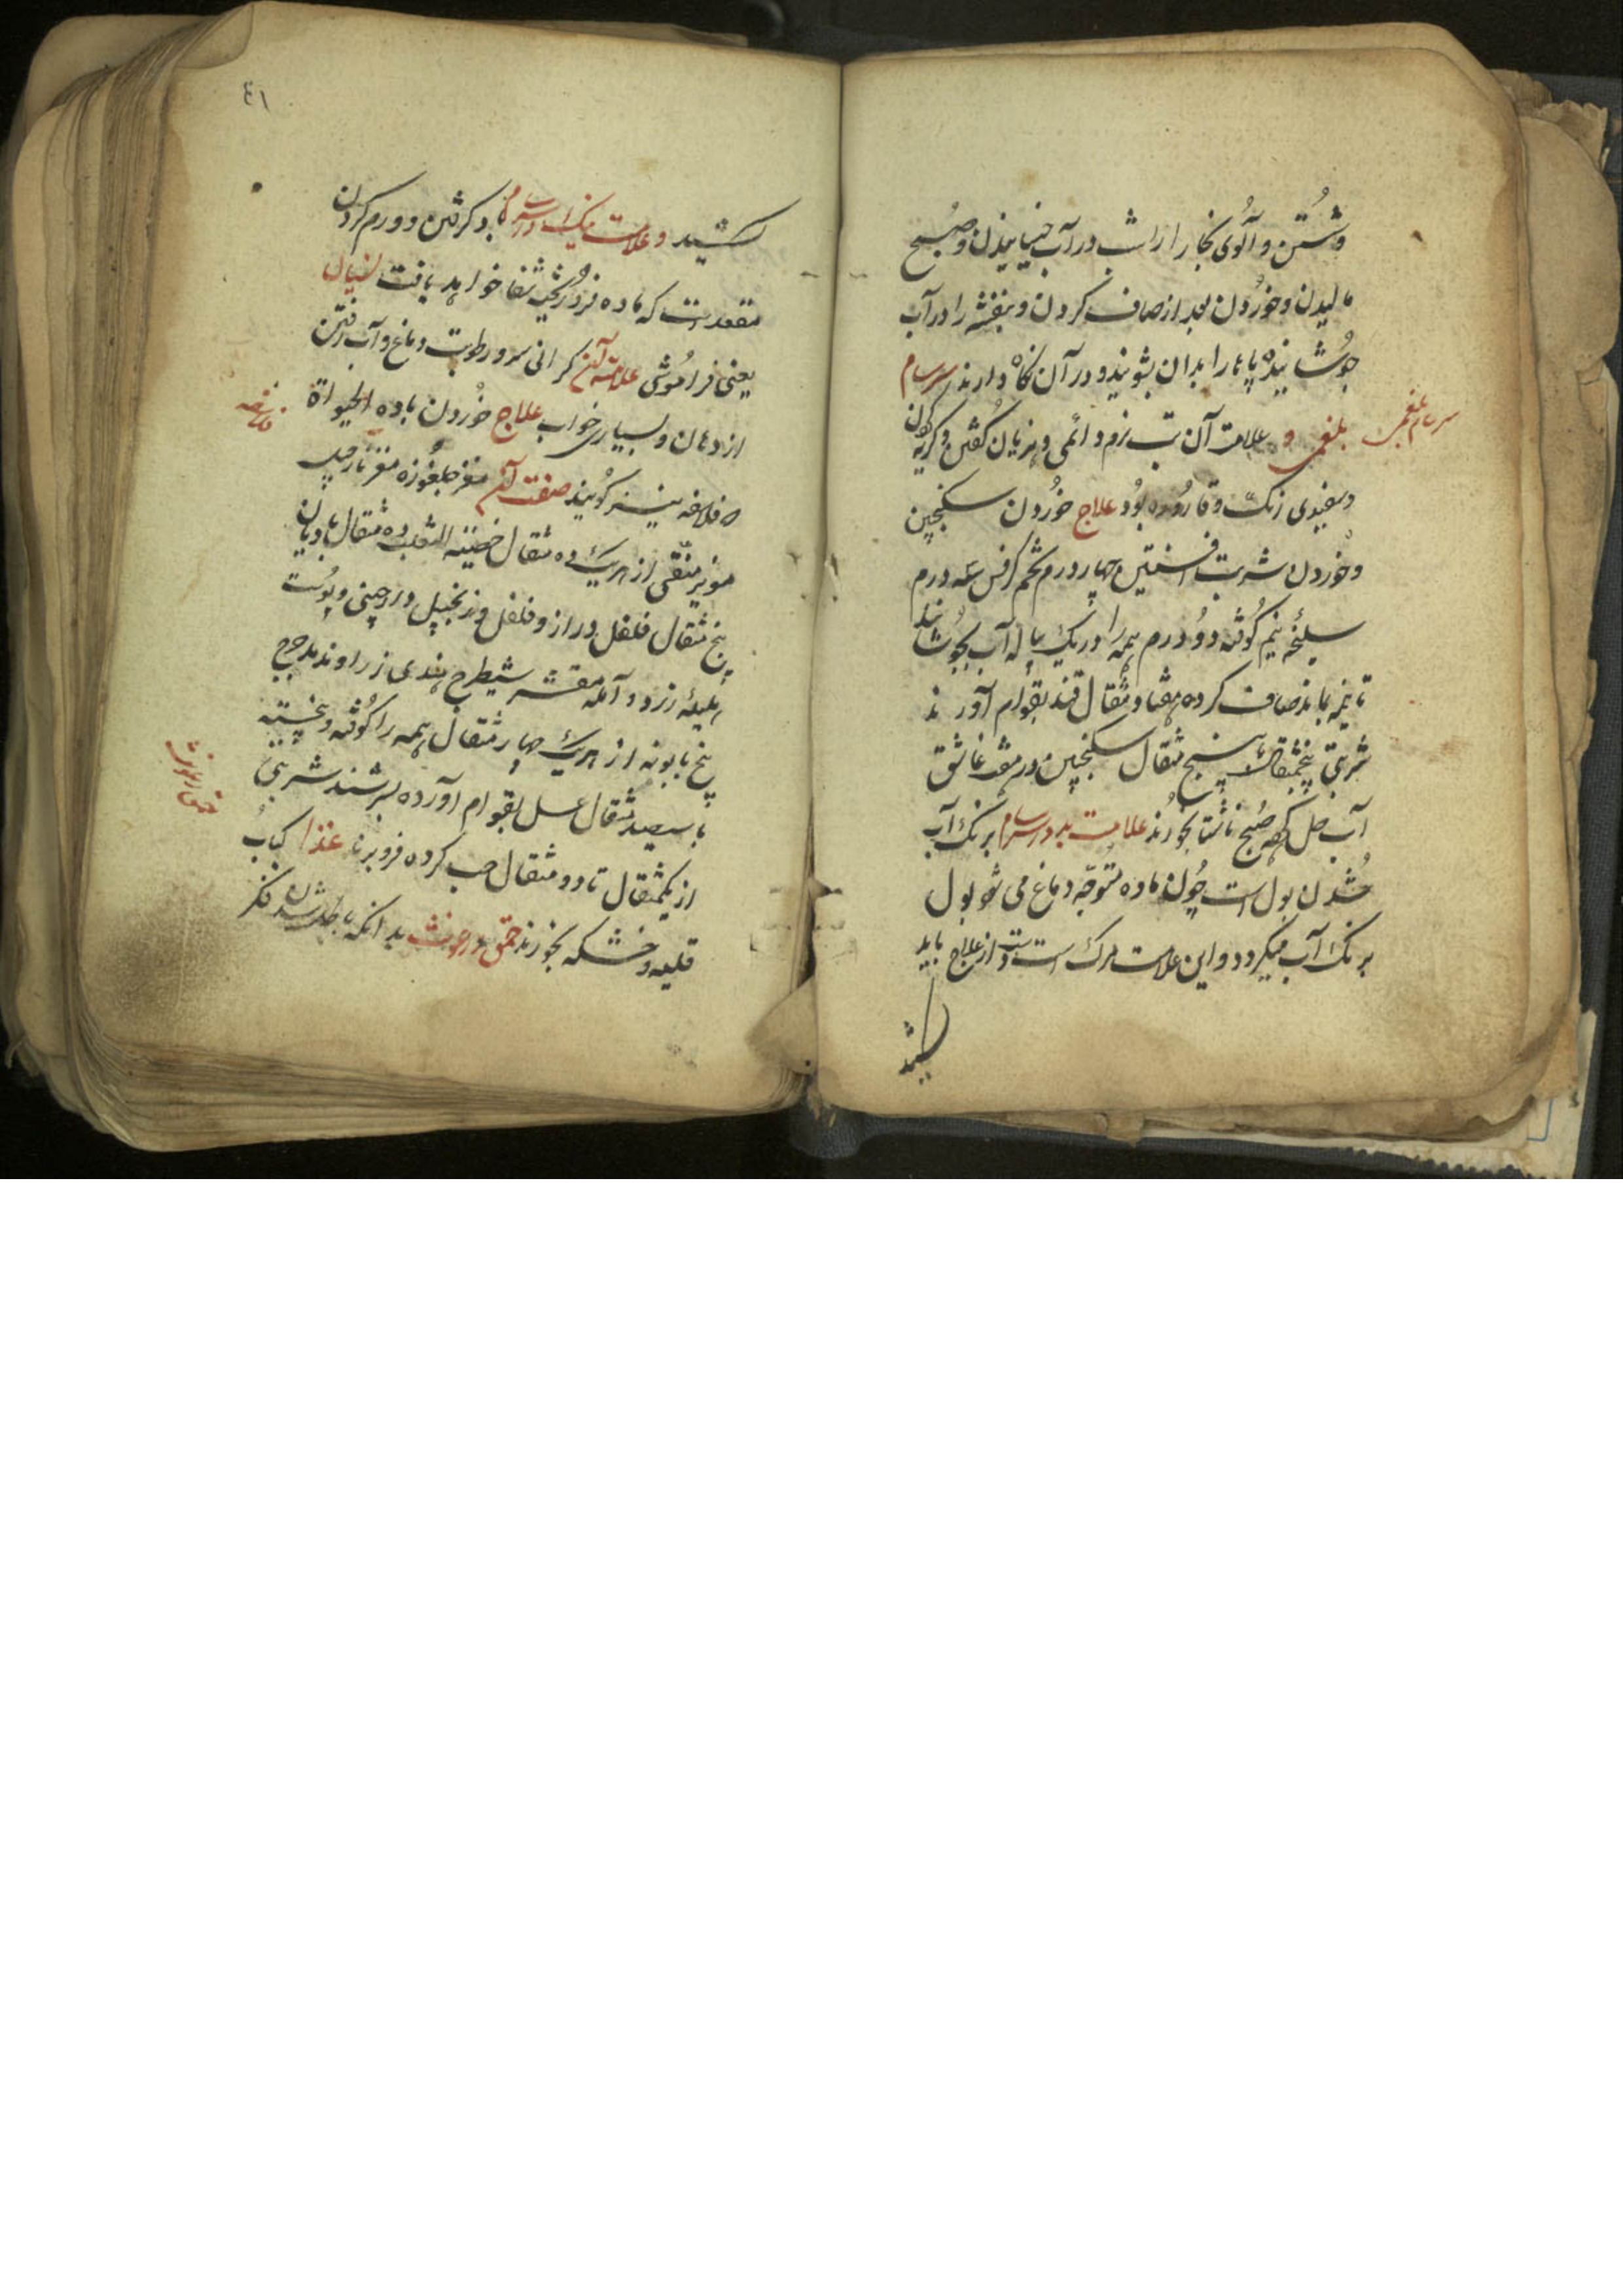 وشستن و آلوی بخارا را شب در آب خیسانیدن و صبح
مالیدن و خوردن بعد از صاف کردن و بنفشه را در آب
جوشانیده پاها را بدان بشویند و در آن نگاه دارند سرسام
سرسام بلغمی
بلغمی و علامت آن تب نرم دائمی و هذیان گفتن و گریه کردن
و سفیدی رنگ و قاروره بود علاج خوردن سکنجبین
و خوردن شربت افسنتین چهار درم تخم کرفس سه درم
سلیخه نیم کوفته دو درم همه را در یک پیاله آب بجوشانند
تا نیمه بماند صاف کرده هفتاد مثقال قند بقوام آورند
شربتی پنجمثقال تا پنج مثقال سکنجبین در عرق
آب حل کرده صبح ناشتا بخورند علامت بد در سرسام برنگ آب
شدن بول است چون ماده متوجه دماغ می شود بول
برنگ آب میگردد و این علامت مرگ است دست از علاج باید
کشید
٤١
کشید و علامت نیک در سرسام درد گرفتن و ورم کردن
مقعد است که ماده فرود شفا خواهد یافت نسیان
یعنی فراموشی علامت آن گرانی سر و رطوبت دماغ و آب رفتن
از دهان و بسیاری خواب علاج خوردن مادة الحیوة
فلاسفه
که فلاسفه نیز گویند صفت آن مغز چلغوزه مغز نارجیل
مویز منقی از هریک ده مثقال خصیة الثعلب ده مثقال بادیان
پنج مثقال فلفل دراز و فلفل و زنجبیل و دارچینی و پوست
هلیله زرد و آمله مقشر شیطرج هندی زراوند مدحرج
بیخ بابونه از هریک چهار مثقال همه را کوفته و بیخته
با سیصد مثقال عسل بقوام آورده بسرشند شربتی
حمق و رعونت
از یکمثقال تا دو مثقال حب کرده فرو برند غذا کباب
قلیه و خشکه بخورند حمق و رعونت بدانکه باطل شدن فکر